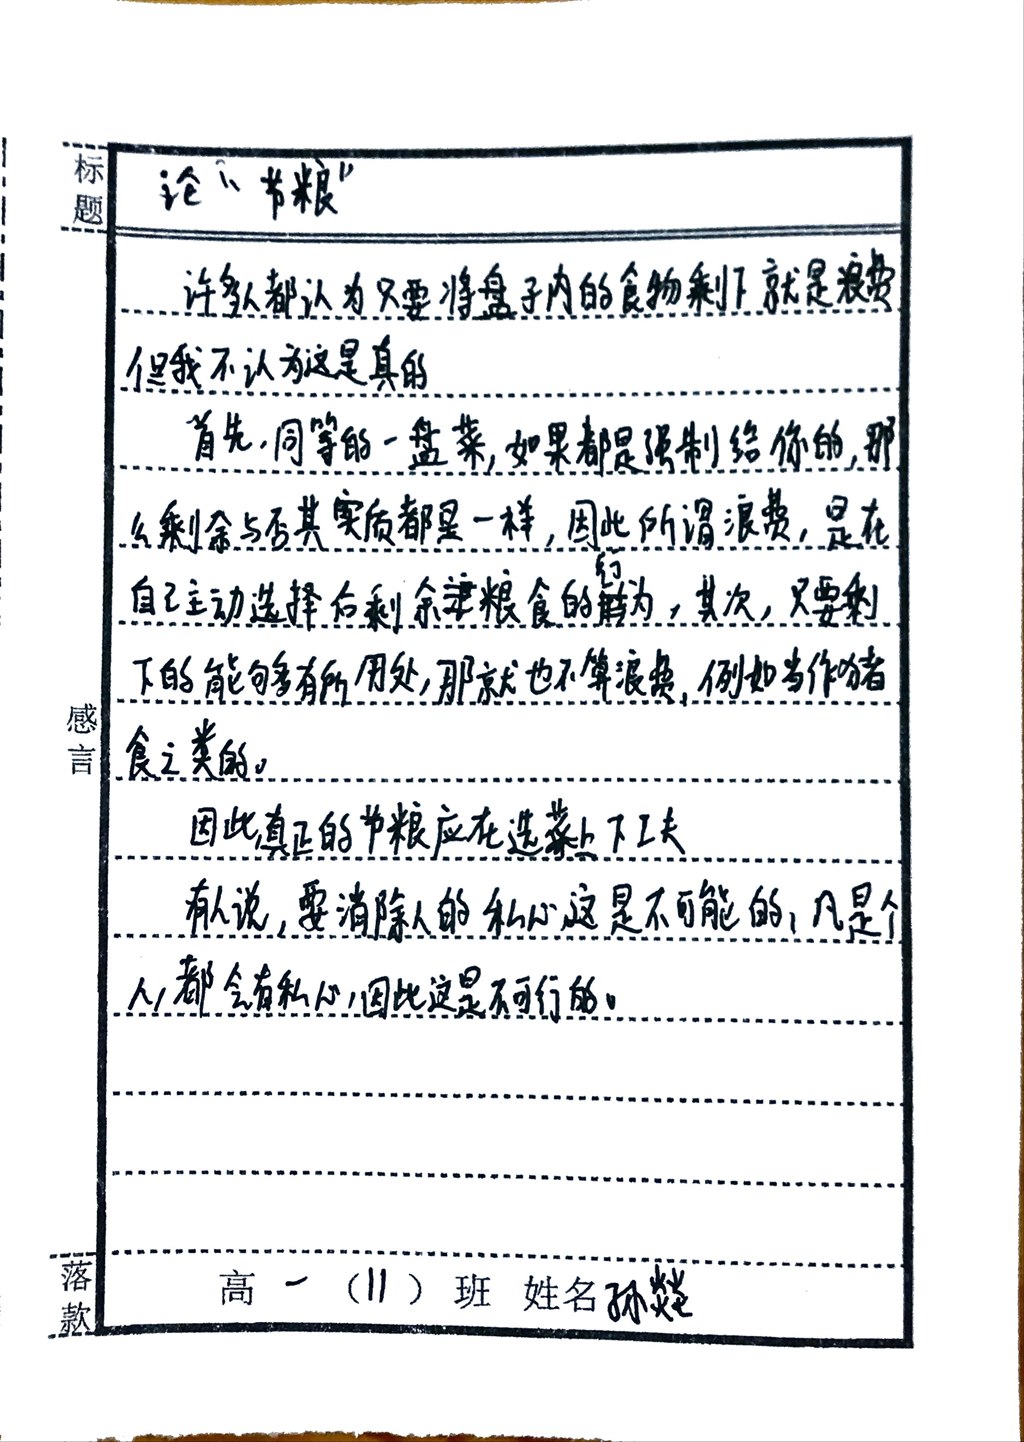 标题
论“节粮”
许多人都认为只要将盘子内的食物剩下就是浪费
但我不认为这是真的
首先,同等的一盘菜,如果都是强制给你的,那
么剩余与否其实质都是一样,因此所谓浪费,是在
自己主动选择后剩余粮食的行为,其次,只要剩
下的能够有所用处,那就也不算浪费,例如当作猪
食之类的。
因此真正的节粮应在选菜上下工夫
有人说,要消除人的私心,这是不可能的,凡是个
人,都会有私心,因此这是不可行的。
感言
落款
高一(11)班 姓名孙